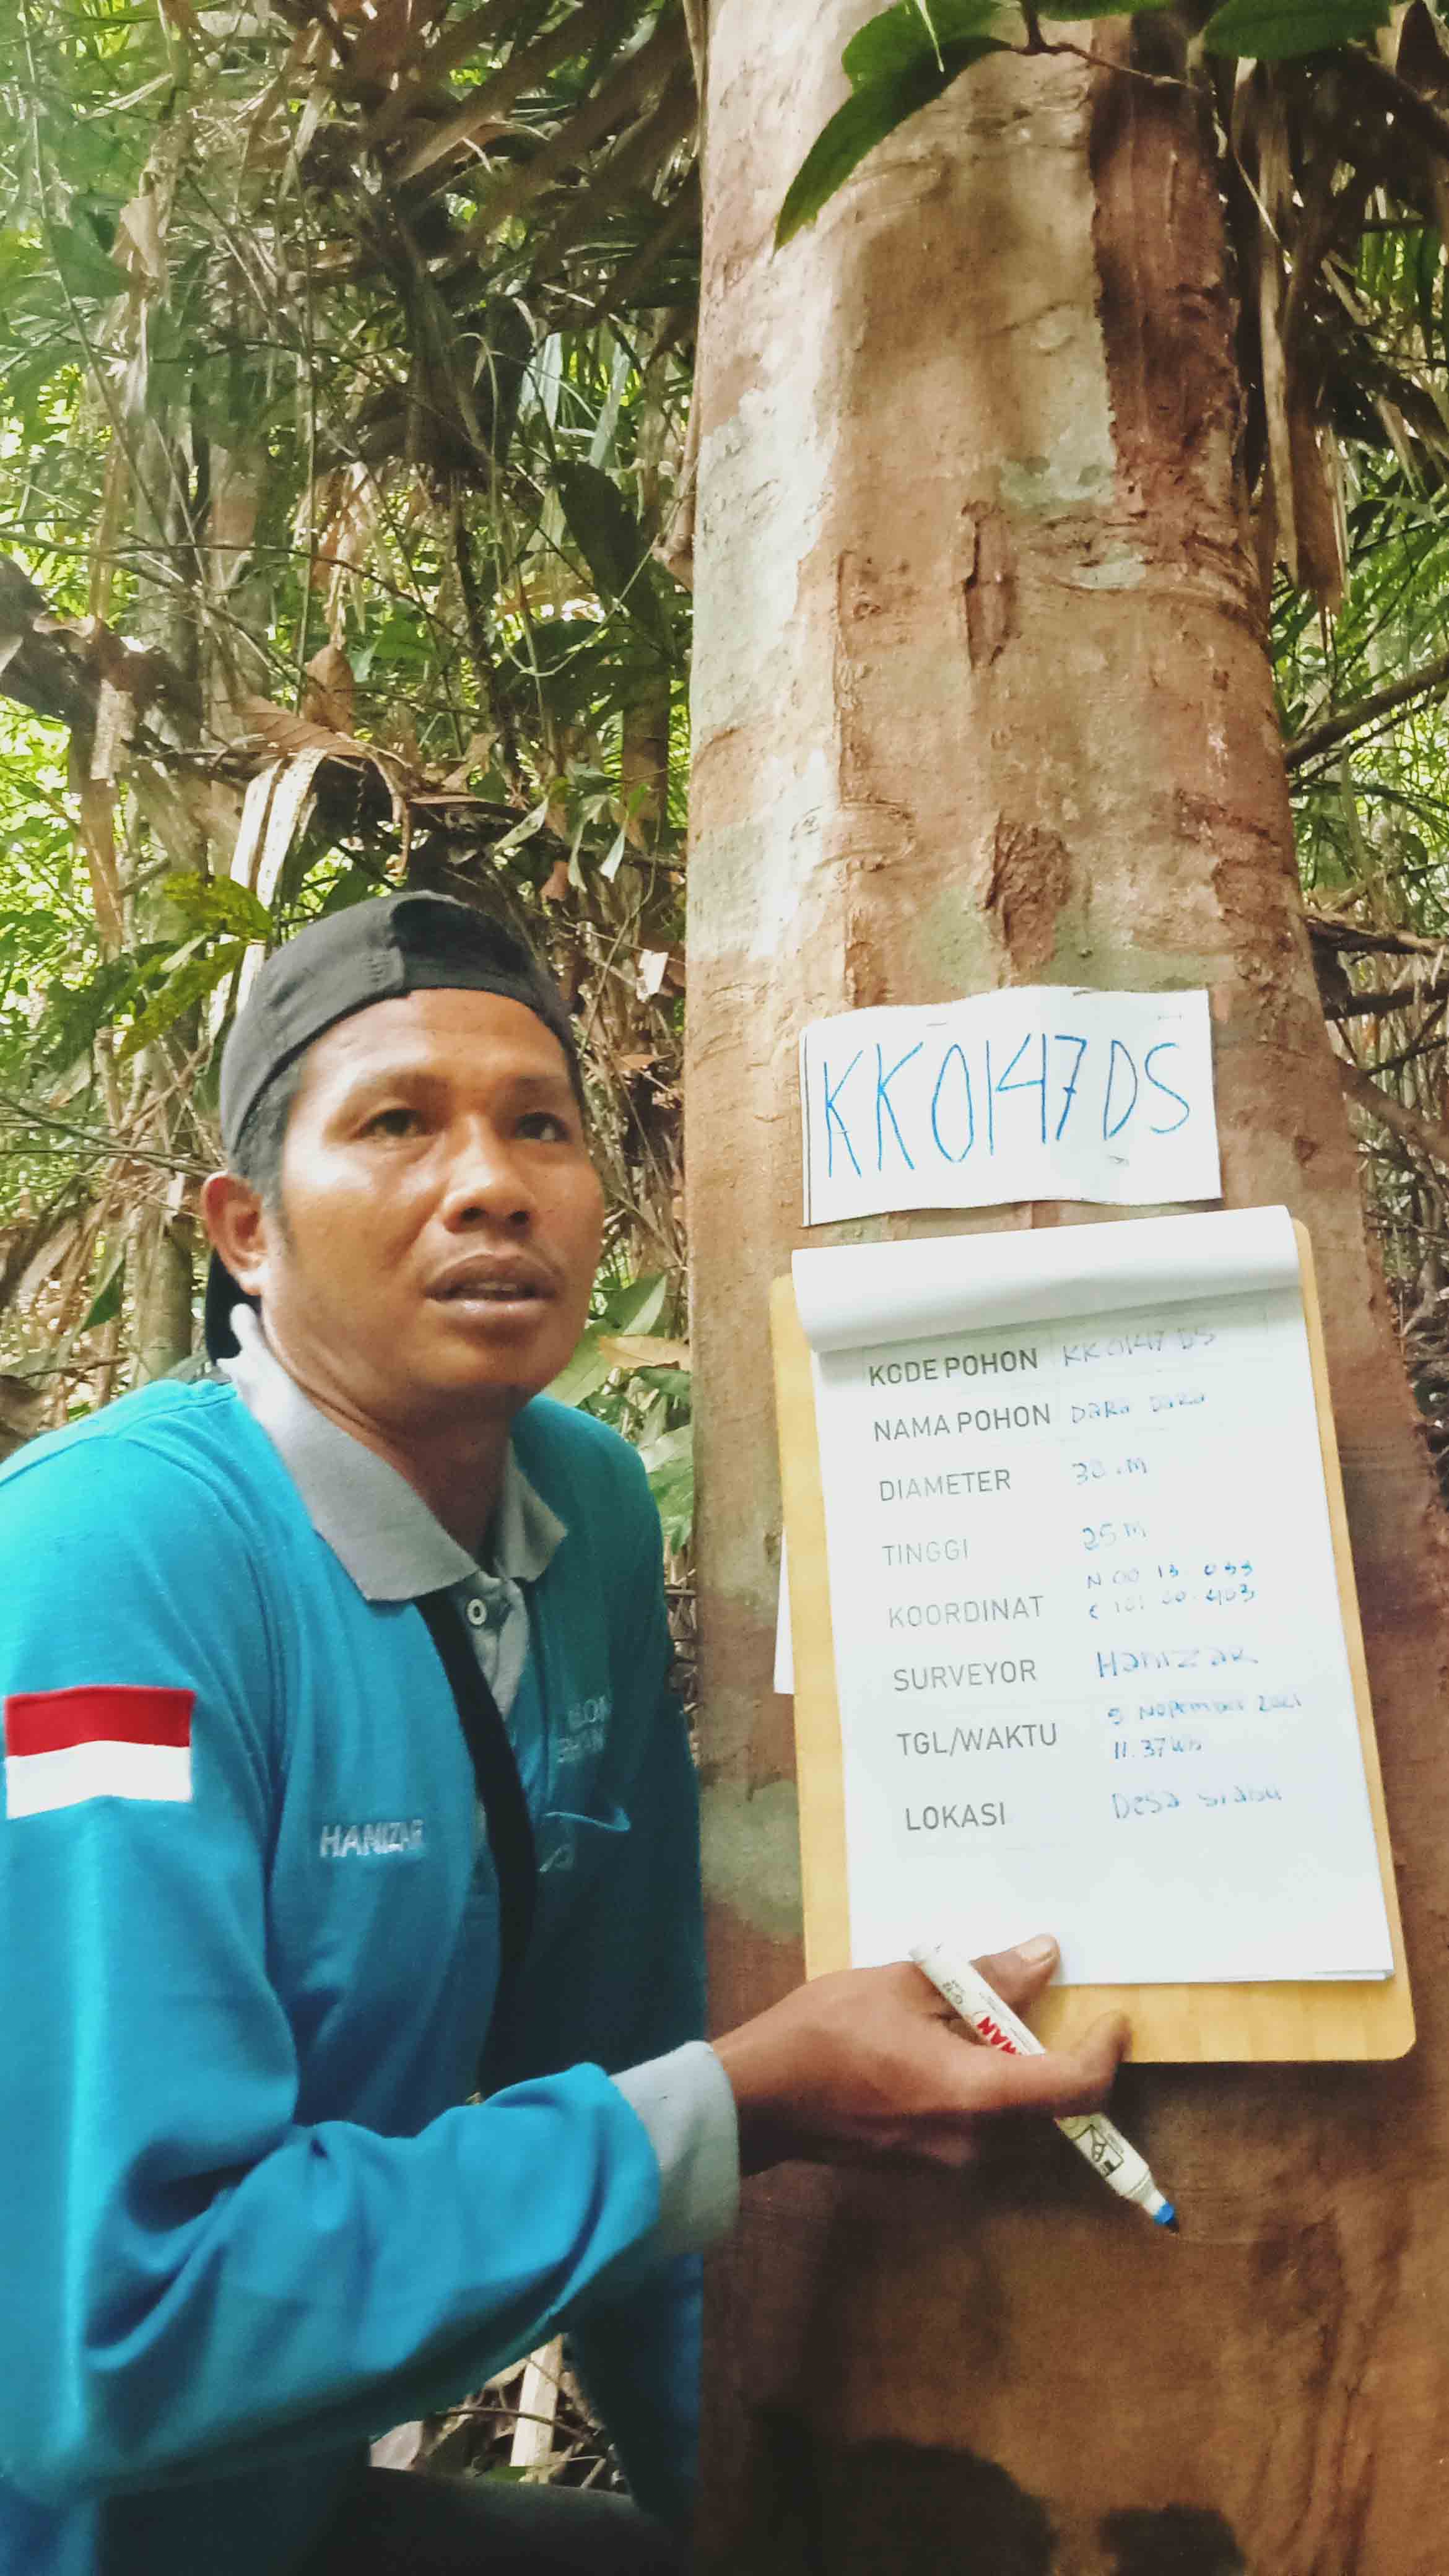 KK0147DS
KODE POHON KK0147 DS
NAMA POHON Dara Dara
DIAMETER 30.M
TINGGI 25 M
KOORDINAT N 00 13.033
E 101 00.403
SURVEYOR HANIZAR
TGL/WAKTU 9 November 2021
11.37 WIB
LOKASI Desa Siabu
HANIZAR
SNOWMAN